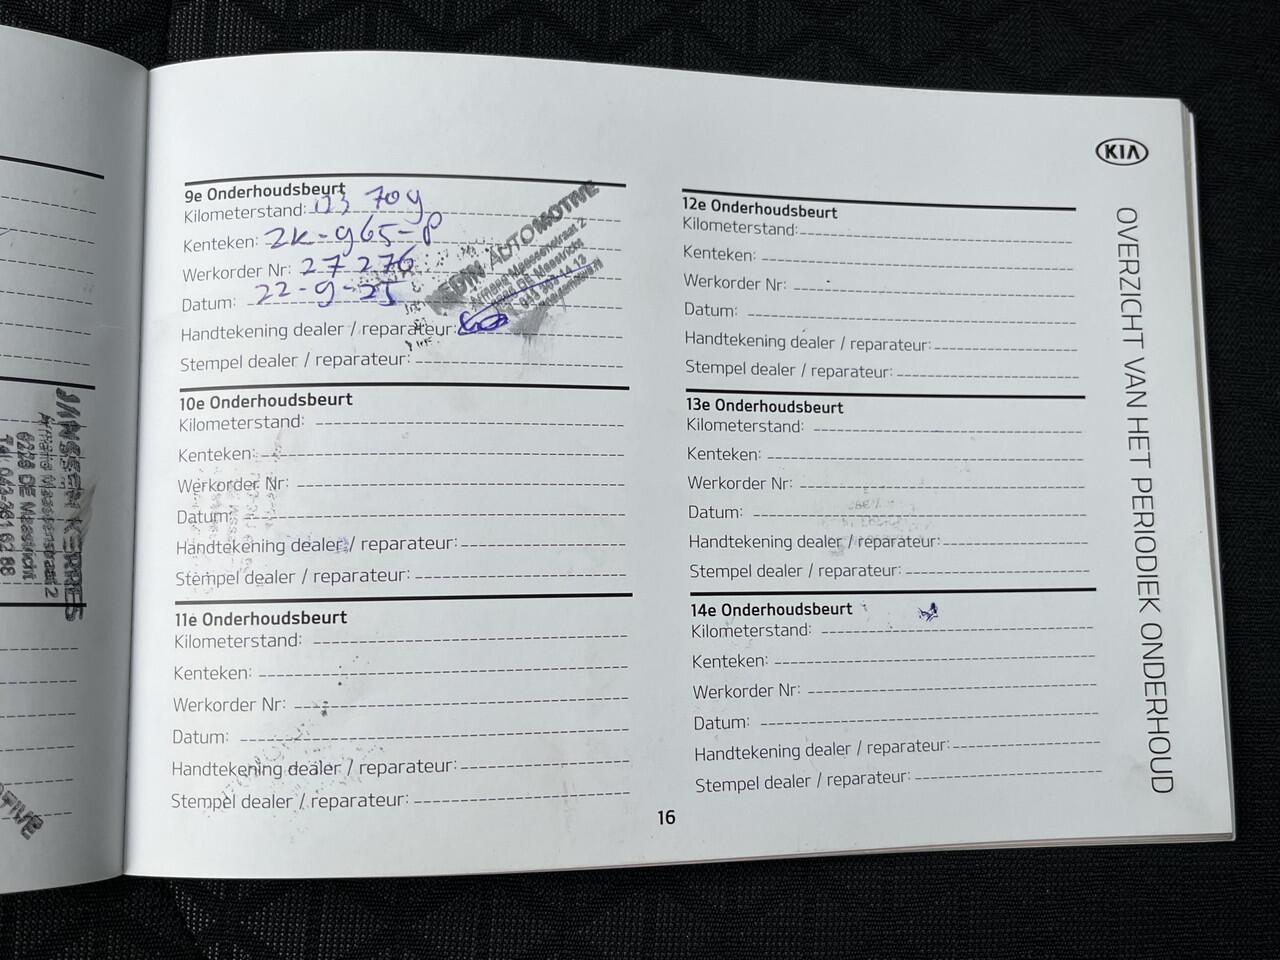 JANSSEN KERRES
Armand Maassenstraat 2
6228 DE Maastricht
9e Onderhoudsbeurt
Kilometerstand:
Kenteken: ZK-965-P
Werkorder Nr: 27276
Datum: 22-9-25
Handtekening dealer / reparateur:
Stempel dealer / reparateur:
AUTOMOTIVE
Armand Maassenstraat 2
10e Onderhoudsbeurt
Kilometerstand:
Kenteken:
Werkorder Nr:
Datum:
Handtekening dealer / reparateur:
Stempel dealer / reparateur:
11e Onderhoudsbeurt
Kilometerstand:
Kenteken:
Werkorder Nr:
Datum:
Handtekening dealer / reparateur:
Stempel dealer / reparateur:
12e Onderhoudsbeurt
Kilometerstand:
Kenteken:
Werkorder Nr:
Datum:
Handtekening dealer / reparateur:
Stempel dealer / reparateur:
13e Onderhoudsbeurt
Kilometerstand:
Kenteken:
Werkorder Nr:
Datum:
Handtekening dealer / reparateur:
Stempel dealer / reparateur:
14e Onderhoudsbeurt
Kilometerstand:
Kenteken:
Werkorder Nr:
Datum:
Handtekening dealer / reparateur:
Stempel dealer / reparateur:
KIA
OVERZICHT VAN HET PERIODIEK ONDERHOUD
16